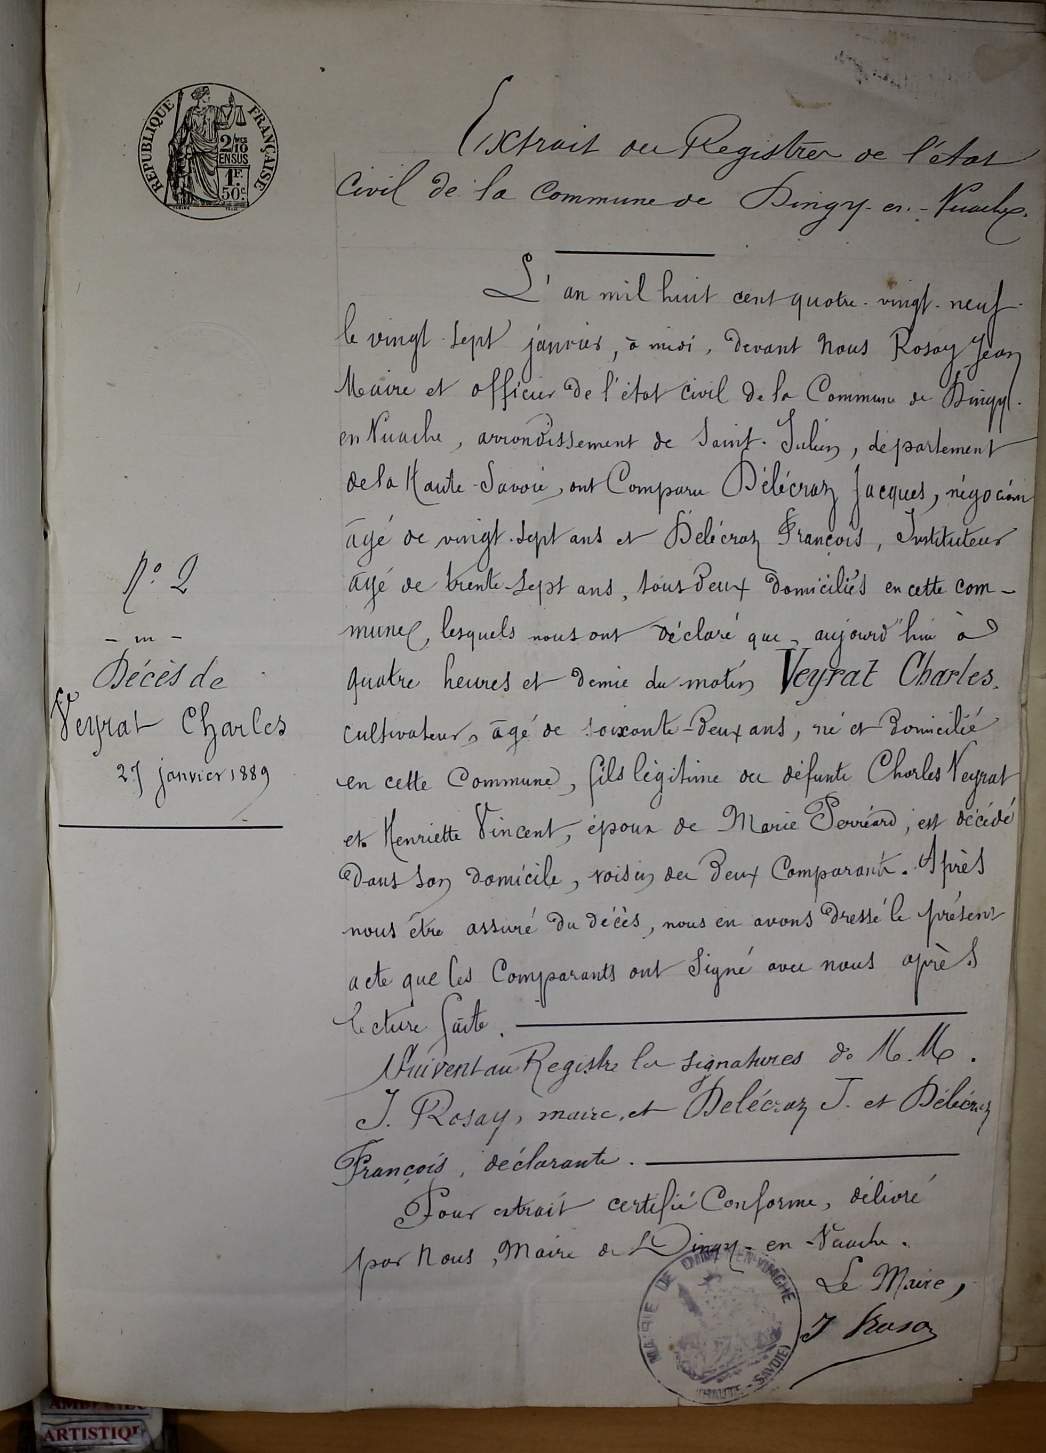 RÉPUBLIQUE FRANÇAISE
2/10 EN SUS
1 F. 50 c.
Extrait du Registre de l'état
civil de la Commune de Dingy-en-Vuache.
L'an mil huit cent quatre-vingt-neuf
le vingt-sept janvier, à midi, devant nous Rosay Jean
Maire et officier de l'état civil de la Commune de Dingy-
en Vuache, arrondissement de Saint-Julien, département
de la Haute-Savoie, ont Comparu Délécraz Jacques, négociant
âgé de vingt-sept ans et Delécraz François, Instituteur
âgé de trente-sept ans, tous deux domiciliés en cette com-
mune, lesquels nous ont déclaré que, aujourd'hui à
quatre heures et demie du matin Veyrat Charles,
cultivateur, âgé de soixante-deux ans, né et domicilié
en cette Commune, fils légitime de défunts Charles Veyrat
et Henriette Vincent, époux de Marie Perréard, est décédé
dans son domicile, voisin des deux Comparants. Après
nous être assuré du décès, nous en avons dressé le présent
acte que les Comparants ont signé avec nous après
lecture faite.
Suivent au Registre les signatures de M.M.
J. Rosay, maire, et Delécraz J. et Délécraz
François, déclarants.
Pour extrait certifié Conforme, délivré
par Nous, Maire de Dingy-en-Vuache.
Le Maire,
J Rosay
N° 2
Décès de
Veyrat Charles
27 janvier 1889
MAIRIE DE DINGY-EN-VUACHE
(HAUTE-SAVOIE)
ARTISTIQU